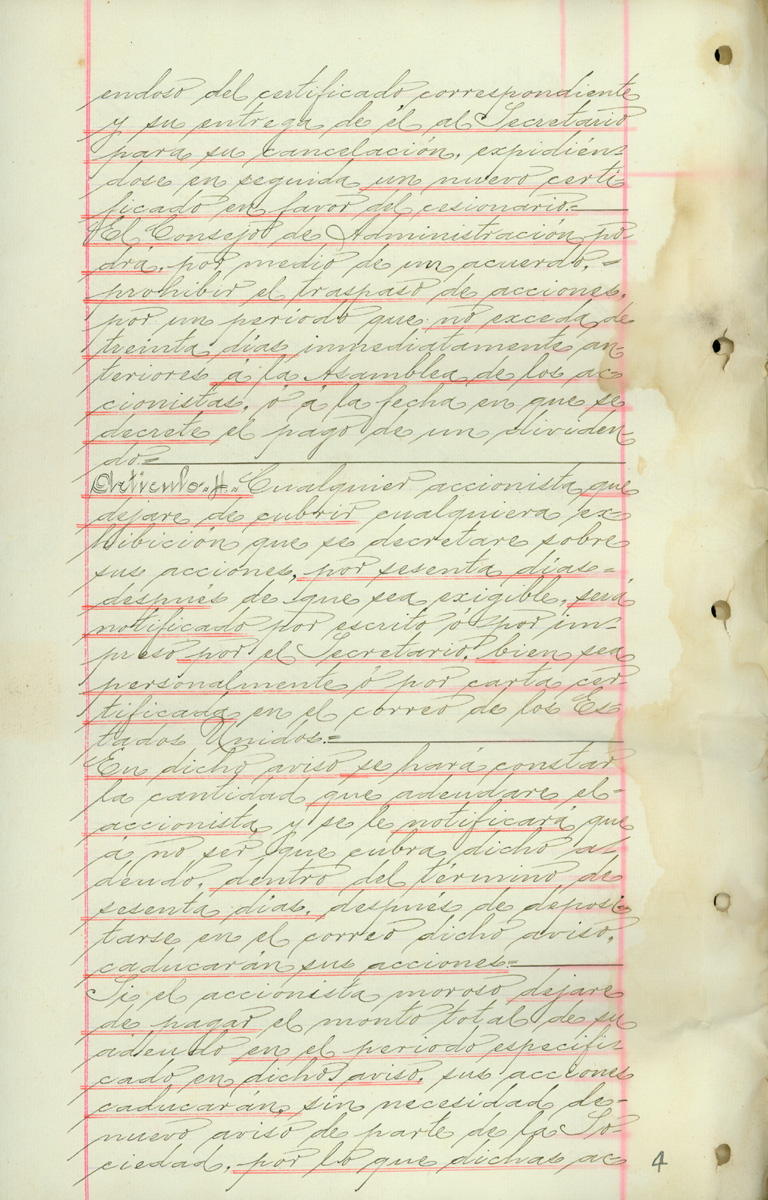 endoso del certificado correspondiente
y su entrega de él al Secretario
para su cancelación, expidién-
dose en seguida un nuevo certi
ficado en favor del cesionario.=
El Consejo de Administración po-
drá, por medio de un acuerdo,=
prohibir el traspaso de acciones,
por un período que no exceda de
treinta días immediatamente an
teriores á la Asamblea de los ac
cionistas, ó á la fecha en que se
decrete el pago de un dividen
do.=
Artículo..4.. Cualquier accionista que
dejare de cubrir cualquiera ex
hibición que se decretare sobre
sus acciones, por sesenta días=
después de que sea exigible, será
notificado por escrito ó por im-
preso por el Secretario, bien sea
personalmente ó por carta cer
tificada en el correo de los Es
tados Unidos.=
En dicho aviso se hará constar
la cantidad que adeudare el-
accionista y se le notificará que
á no ser que cubra dicho a-
deudo, dentro del término de
sesenta días, después de deposi-
tarse en el correo dicho aviso,
caducarán sus acciones=
Si el accionista moroso dejare
de pagar el monto total de su
adeudo en el período especifi-
cado en dicho aviso, sus acciones
caducarán, sin necesidad de-
nuevo aviso de parte de la So-
ciedad, por lo que dichas ac
4